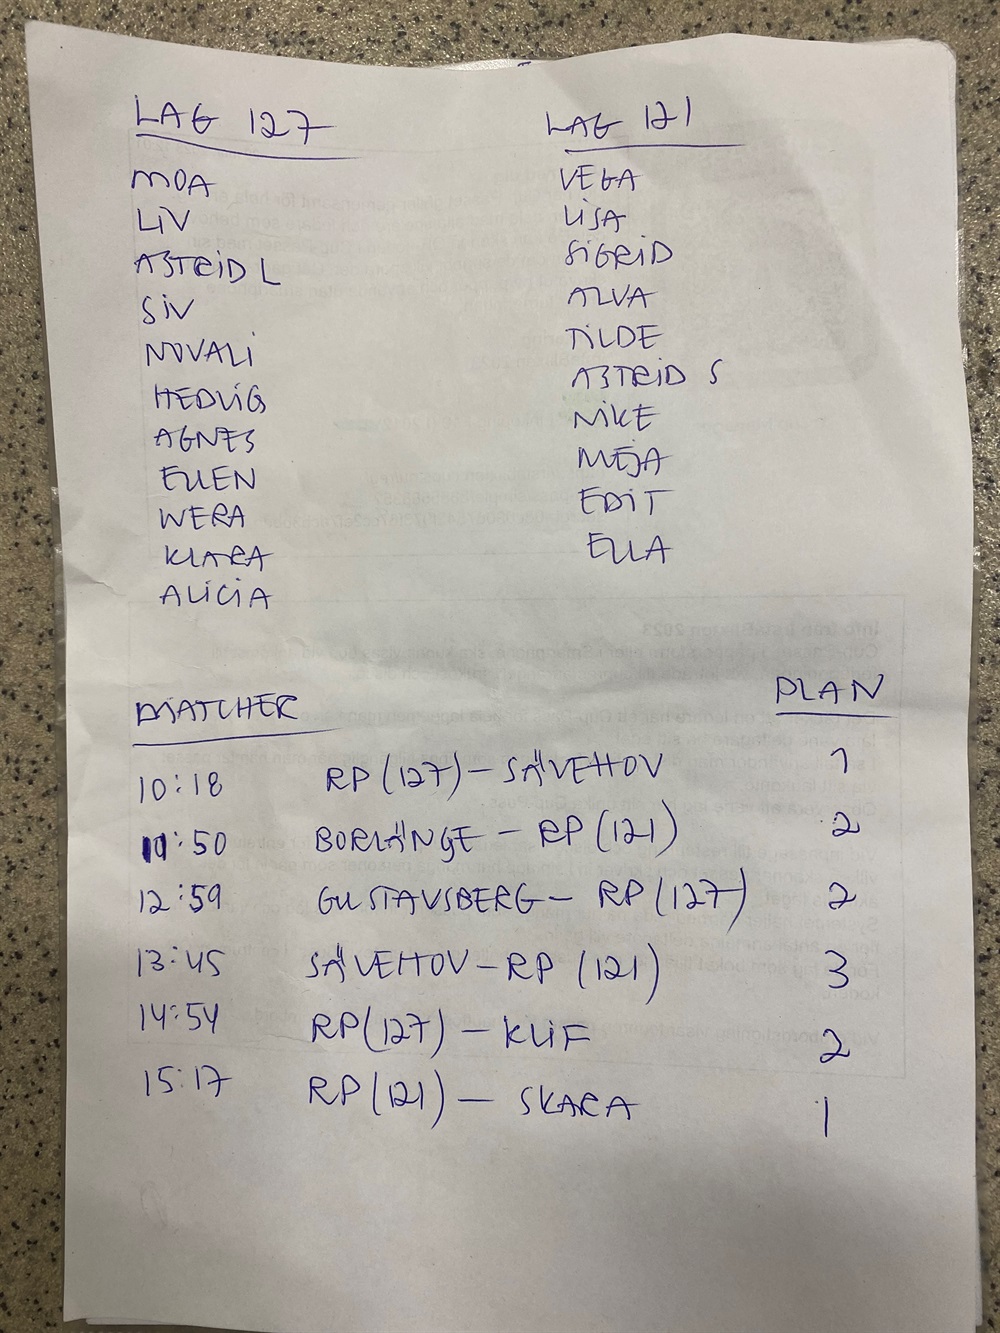 LAG 127
MOA
LIV
ASTRID L
SIV
NOVALI
HEDVIG
AGNES
ELLEN
WERA
KLARA
ALICIA
LAG 121
VEGA
LISA
SIGRID
ALVA
TILDE
ASTRID S
NIKE
MEJA
EDIT
ELLA
MATCHER PLAN
10:18 RP (127) – SÄVEHOV 1
11:50 BORLÄNGE – RP (121) 2
12:59 GUSTAVSBERG – RP (127) 2
13:45 SÄVEHOV – RP (121) 3
14:54 RP (127) – KLIF 2
15:17 RP (121) – SKARA 1